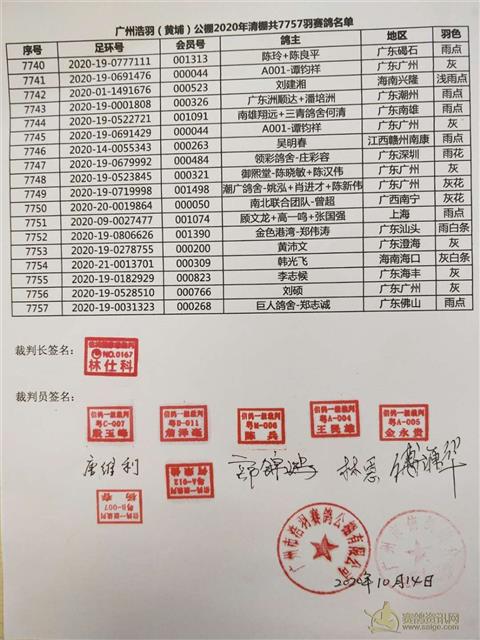 广州浩羽（黄埔）公棚2020年清棚共7757羽赛鸽名单
序号 足环号 会员号 鸽主 地区 羽色
7740 2020-19-0777111 001313 陈玲+陈良平 广东碣石 雨点
7741 2020-19-0691476 000044 A001-谭钧祥 广东广州 灰
7742 2020-01-1491676 000523 刘建湘 海南兴隆 浅雨点
7743 2020-19-0001808 000326 广东洲顺达+潘培洲 广东潮州 雨点
7744 2020-19-0522721 001091 南雄翔远+三青鸽舍何清 广东南雄 雨点
7745 2020-19-0691429 000044 A001-谭钧祥 广东广州 灰
7746 2020-14-0055343 000263 吴明春 江西赣州南康 雨点
7747 2020-19-0679992 000484 领彩鸽舍-庄彩容 广东深圳 雨花
7748 2020-19-0523845 000321 御熙堂-陈晓敏+陈汉伟 广东广州 灰
7749 2020-19-0719998 001498 潮广鸽舍-姚泓+肖进才+陈新伟 广东广州 灰花
7750 2020-20-0019864 000050 南北联合团队-曾超 广西南宁 灰花
7751 2020-09-0027477 001074 顾文龙+高一鸣+张国强 上海 雨点
7752 2020-19-0806626 001390 金色港湾-郑伟涛 广东汕头 雨白条
7753 2020-19-0278755 000200 黄沛文 广东澄海 灰
7754 2020-21-0013701 000309 韩光飞 海南海口 灰白条
7755 2020-19-0182929 000823 李志候 广东海丰 灰
7756 2020-19-0528510 000766 刘硕 广东广州 灰
7757 2020-19-0031323 000268 巨人鸽舍-郑志诚 广东佛山 雨点
裁判长签名：
NO.0167
林仕科
裁判员签名：
信鸽一级裁判 信鸽一级裁判 信鸽一级裁判 信鸽一级裁判 信鸽一级裁判
粤C-007 粤D-011 粤M-006 粤A-004 粤A-005
陈兵 王民雄 金永贵
唐维利 粤A-012 林恩
信鸽一级裁判
粤B-007
杨春
广州市浩羽赛鸽公棚有限公司
2020年10月14日
赛鸽资讯网
www.saige.com